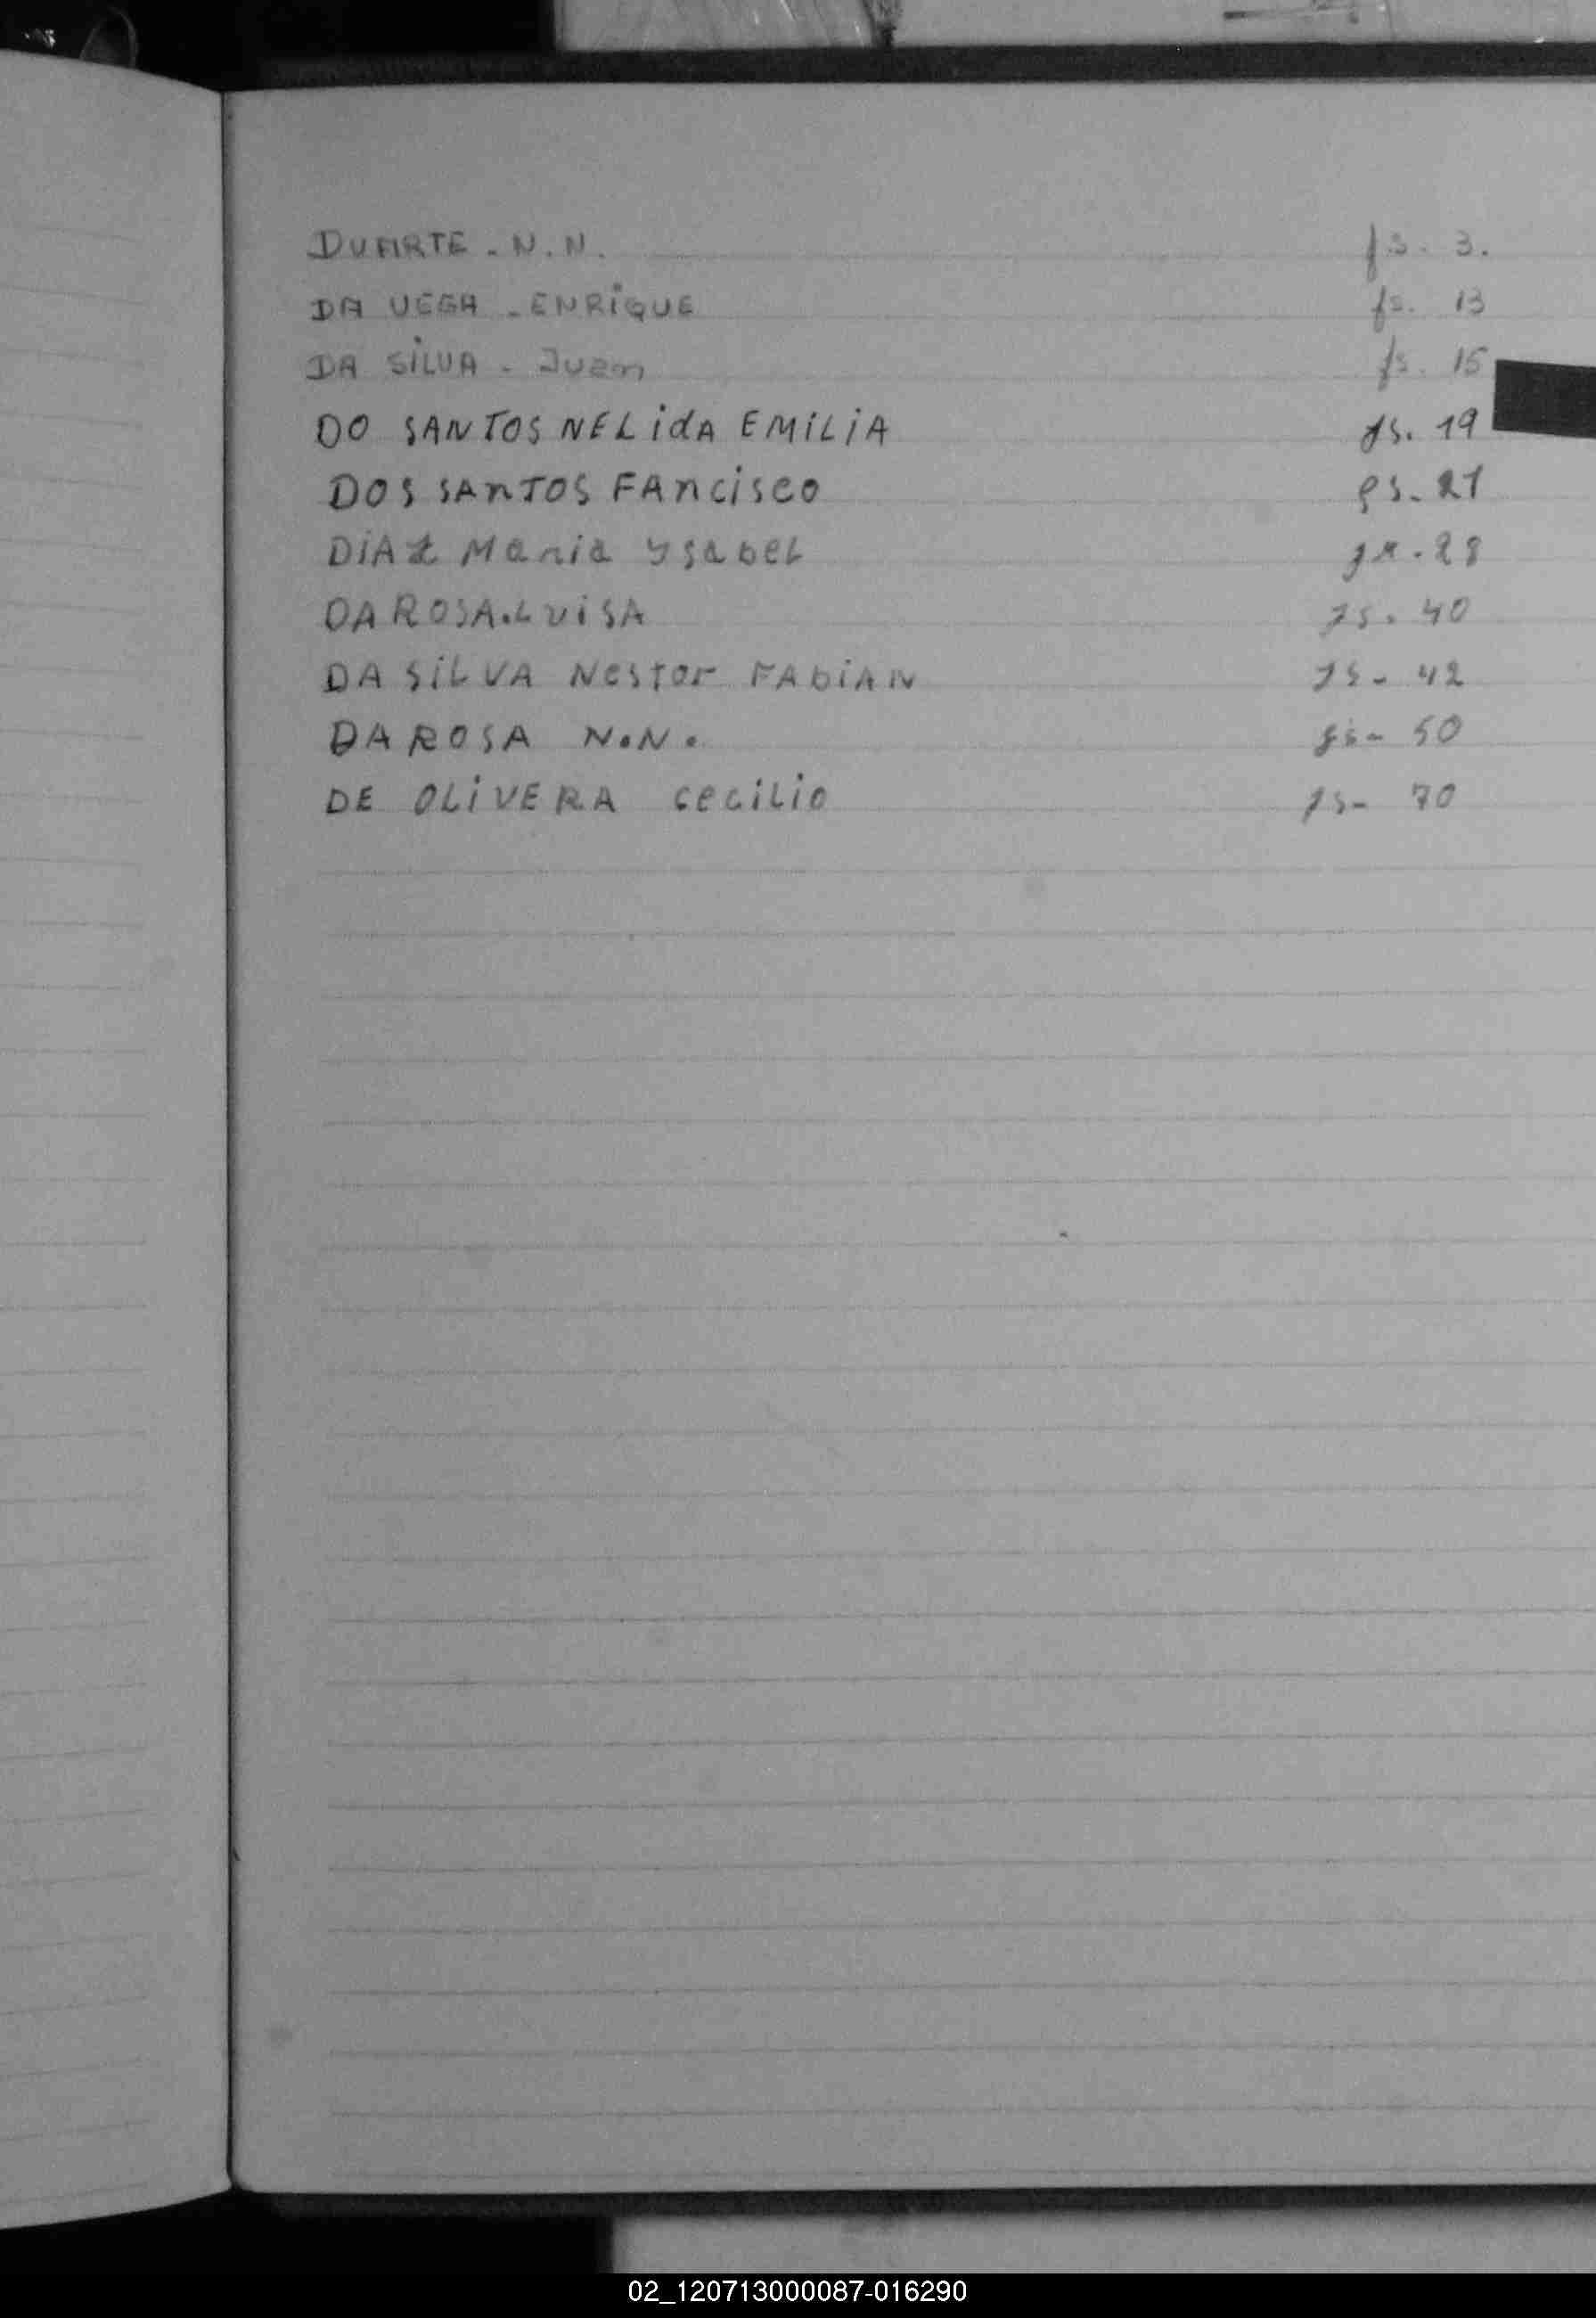 DUARTE - N. N. fs. 3.
DA VEGA - ENRiQUE fs. 13
DA SiLVA - Juan fs. 15
DO SANTOS NELidA EMiLiA fs. 19
DOS SANTOS FANcisco fs. 21
DiAZ Maria YsabeL fs. 28
DA ROSA. LUiSA fs. 40
DA SiLVA Nestor FAbiAN fs- 42
DA ROSA N.N. fs- 50
DE OLiVERA CeciLio fs- 70
02_120713000087-016290